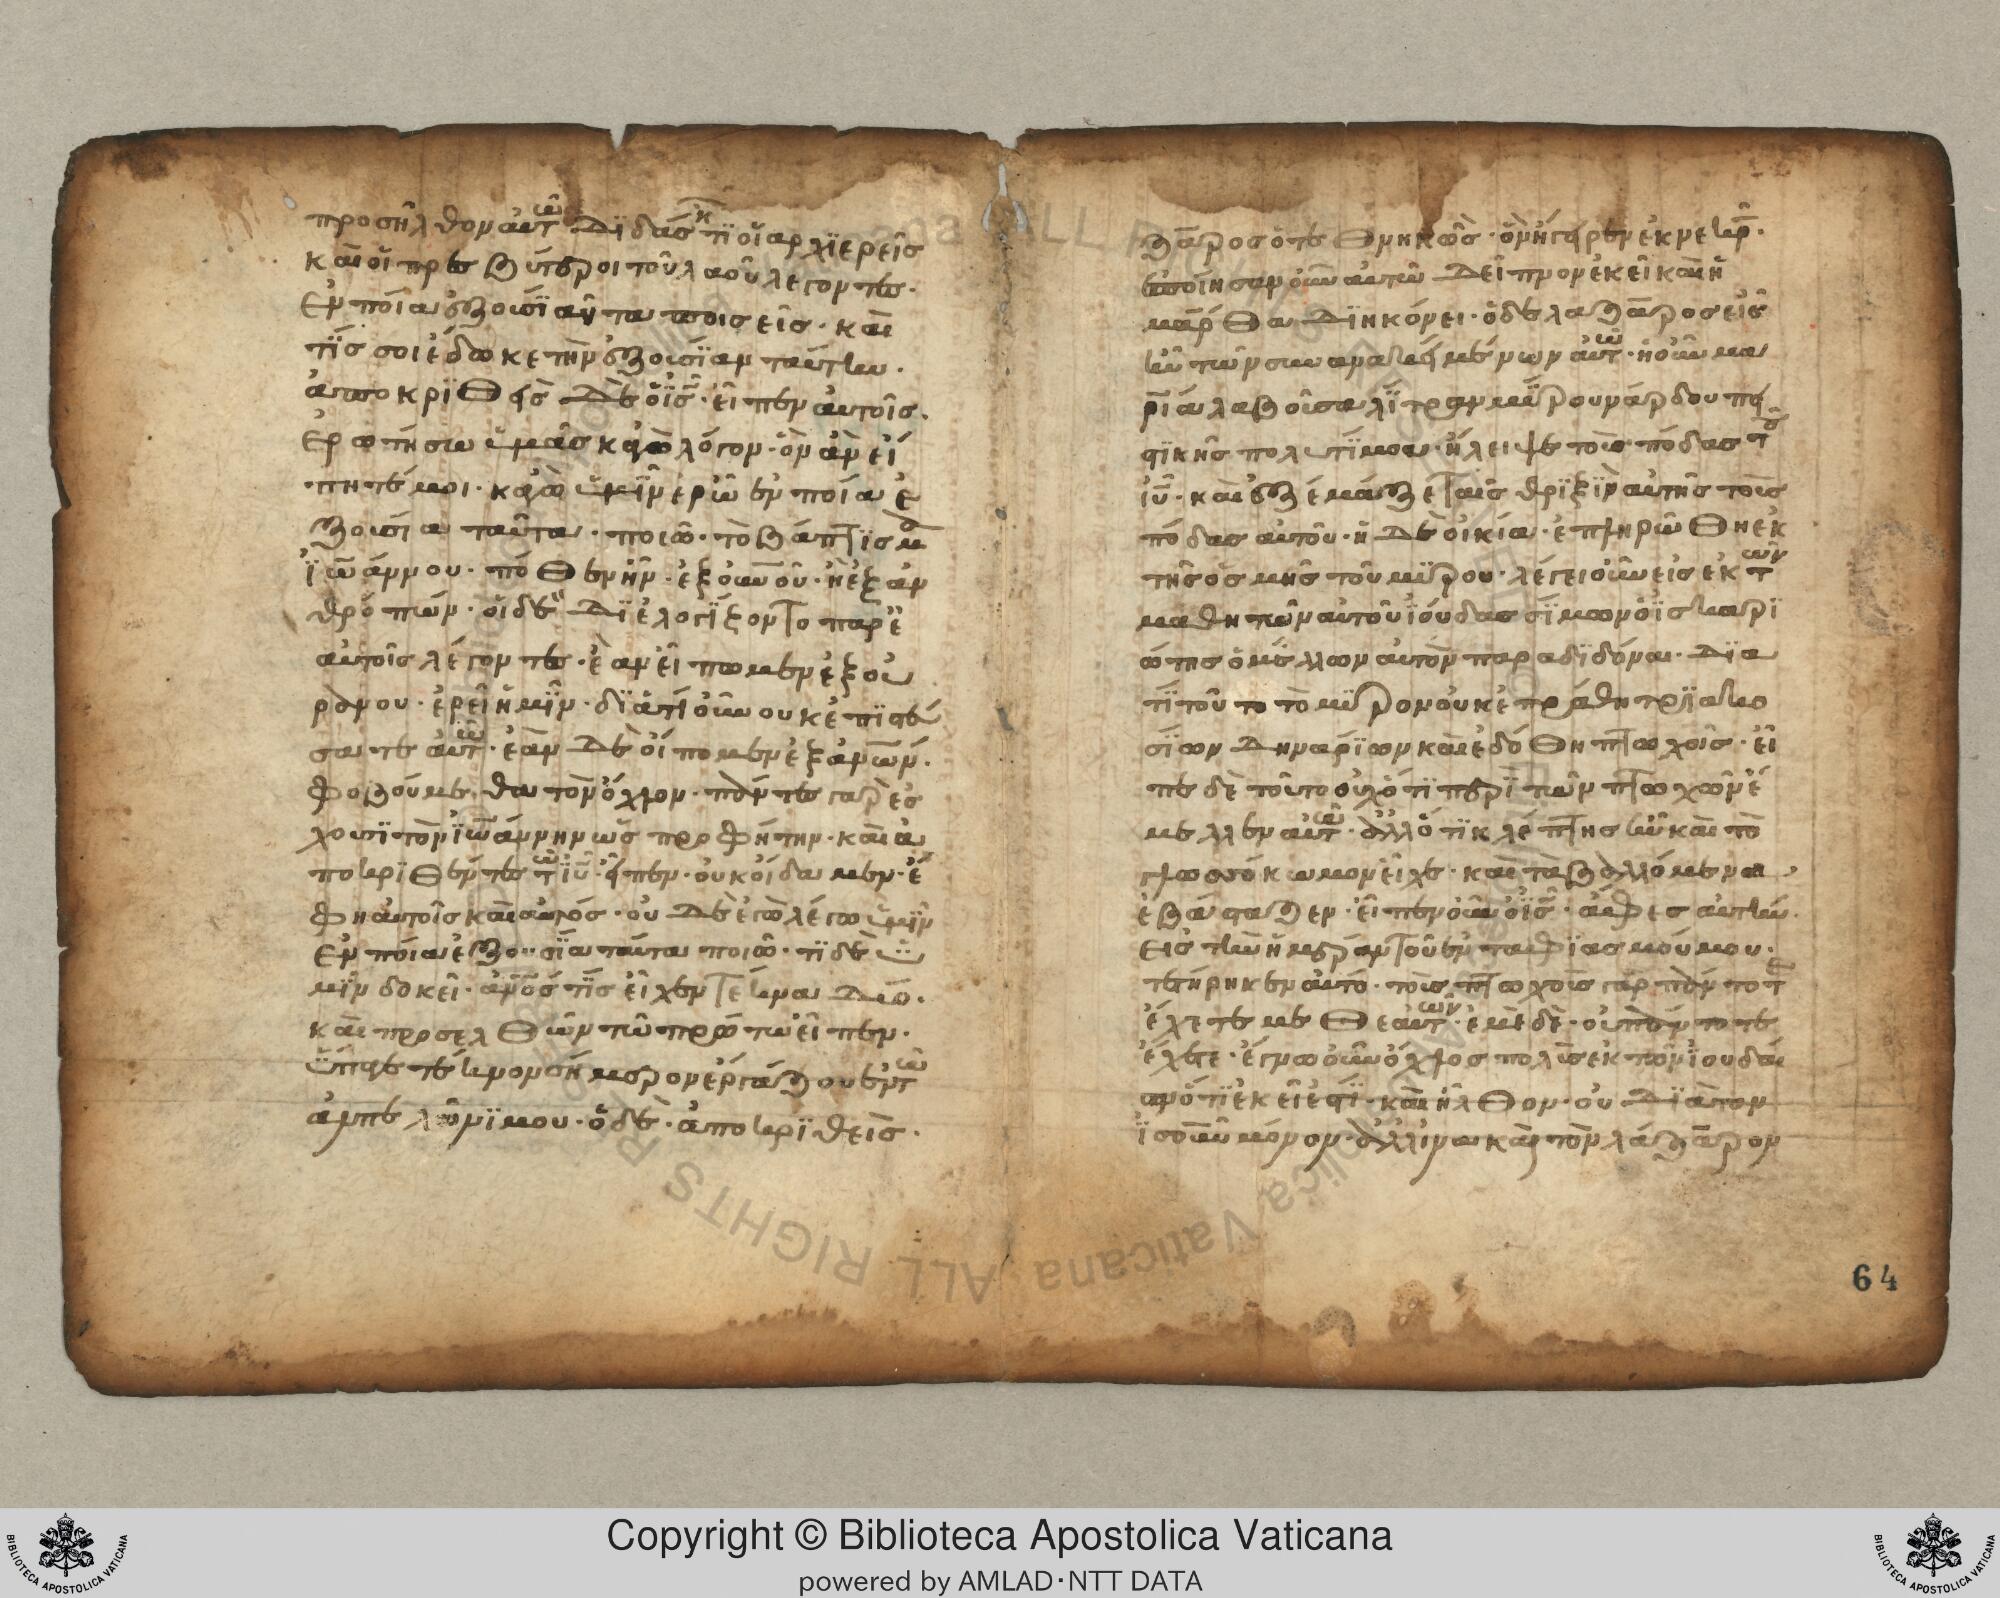 προσῆλθον αὐτῶ διδάσκ τι οἱ ἀρχιερεῖς
καὶ οἱ πρεσβύτεροι τοῦ λαοῦ λέγοντες·
Ἐν ποία ἐξουσία ταῦτα ποιεῖς· καὶ
τίς σοι ἔδωκε τὴν ἐξουσίαν ταύτην·
ἀποκριθεὶς δὲ ὁ ις· εἶπεν αὐτοῖς·
Ἐρωτήσω ὑμᾶς κἀγὼ λόγον· ὃν ἂν εἴ
πητέ μοι· κἀγὼ ὑμῖν ἐρῶ ἐν ποία ἐ
ξουσία ταῦτα· ποιῶ· τὸ βάπτισμα
ἰωάννου· πόθεν ἦν· ἐξ ουνου· ἢ ἐξ ἀν
θρώπων· οἱ δὲ διελογίζοντο παρ' ἑ
αυτοῖς λέγοντες· ἐὰν εἴπωμεν ἐξ οὐ
ρανου· ἐρεῖ ἡμῖν· διατί οὖν οὐκ ἐπιστεύ
σατε αὐτῶ· ἐὰν δὲ εἴπομεν ἐξ ἀνων·
φοβούμεθα τὸν ὄχλον· πάντες γὰρ ἔ
χουσι τὸν ἰωάννην ὡς προφήτην· καὶ ἀ
ποκριθέντες τῶ ιυ· εἶπεν· οὐκ οἴδαμεν· ἔ
φη αὐτοῖς καὶ αὐτός· οὐ δὲ ἐγὼ λέγω ὑμῖν
Ἐν ποία ἐξουσία ταῦτα ποιῶ· τί δὲ ὑ
μῖν δοκεῖ· ανος τίς εἶχεν τέκνα δύο·
καὶ προσελθὼν τῶ πρώτω εἶπεν·
ὕπαγε τέκνον σήμερον ἐργάζου ἐν τῶ
ἀμπελῶνι μου· ὁ δὲ· ἀποκριθεὶς·
ζαρος ὁ τεθνηκὼς· ὃν ἤγειρεν ἐκ νεκρ·
ἐποίησαν οὖν αὐτῶ δεῖπνον ἐκεῖ καὶ ἡ
μάρθα διηκόνει· ὁ δὲ λάζαρος εἷς
ἦν τῶν συνανακειμένων αὐτῶ· ἡ οὖν μα
ρία λαβοῦσα λίτραν μύρου νάρδου πι
στικῆς πολυτίμου· ἤλειψε τοὺς πόδας τοῦ
ιυ· καὶ ἐξέμαξε ταῖς θριξὶν αὐτῆς τοὺς
πόδας αὐτοῦ· ἡ δὲ οἰκία· ἐπληρώθη ἐκ
τῆς ὀσμῆς τοῦ μύρου· λέγει οὖν εἷς ἐκ τῶν
μαθητῶν αὐτοῦ ἰούδας σίμων ὁ ἰσκαρι
ώτης ὁ μέλλων αὐτὸν παραδιδόναι· δια
τί τοῦτο τὸ μύρον οὐκ ἐπράθη τριακο
σίων δηναρίων καὶ ἐδόθη πτωχοῖς· εἶ
πε δὲ τοῦτο οὐχ ὅτι περὶ τῶν πτωχῶν ἔ
μελλεν αὐτῶ· ἀλλ' ὅτι κλέπτης ἦν καὶ τὸ
γλωσσόκωμον εἶχε· καὶ τὰ βαλλόμενα
ἐβάσταζεν· εἶπεν οὖν ὁ ις· ἄφες αὐτήν·
Εἰς τὴν ἡμέραν τοῦ ἐνταφιασμοῦ μου·
τετήρηκεν αὐτό· τοὺς πτωχοὺς γὰρ πάντοτε
ἔχετε μεθ' ἑαυτῶν· ἐμὲ δὲ· οὐ πάντοτε
ἔχετε· ἔγνω οὖν ὄχλος πολὺς ἐκ τῶν ἰουδαί
ων ὅτι ἐκεῖ ἐστι· καὶ ἦλθον· οὐ διὰ τὸν
ιν μόνον· ἀλλ' ἵνα καὶ τὸν λάζαρον
64
Copyright © Biblioteca Apostolica Vaticana
powered by AMLAD·NTT DATA
BIBLIOTECA APOSTOLICA VATICANA
BIBLIOTECA APOSTOLICA VATICANA